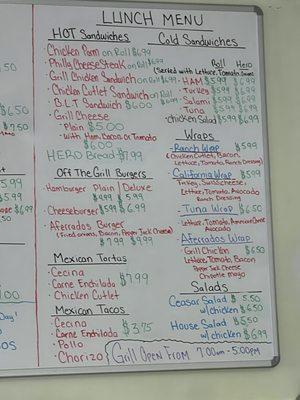 LUNCH MENU
HOT Sandwiches
Chicken Parm on Roll $6.99
Philly Cheese Steak on Roll $6.99
Grill Chicken Sandwich on Roll $6.99
Chicken Cutlet Sandwich on Roll
B.L.T Sandwich $6.00
Grill Cheese
- Plain $5.00
- With Ham, Bacon, or Tomato
$6.00
HERO Bread $7.99
OFF The Grill Burgers
Hamburger Plain | Deluxe
$4.99 $5.99
Cheeseburger $5.99 $6.99
Aferrados Burger
(Fried onions, Bacon, Pepper Jack Cheese)
$7.99 $9.99
Mexican Tortas
Cecina
Carne Enchilada $7.99
Chicken Cutlet
Mexican Tacos
Cecina
Carne Enchilada $3.75
Pollo
Chorizo
Cold Sandwiches
Roll Hero
(Served with Lettuce, Tomato,
HAM $5.99 $6.99
Turkey $5.99 $6.99
Salami $5.99 $6.99
Tuna $5.99 $6.99
chicken Salad $5.99 $6.99
Wraps
Ranch Wrap $5.99
(Chicken Cutlet, Bacon,
Lettuce, Tomato, Ranch Dressing)
California Wrap $5.99
Turkey, Swiss cheese,
Lettuce, Tomato, Avocado
Ranch Dressing
Tuna Wrap $6.50
Lettuce, Tomato, American Cheese
Avocado
Aferrados Wrap
Grill Chicken $6.50
Lettuce, Tomato, Bacon
Pepper Jack Cheese
Chipotle mayo
Salads
Ceasar Salad $5.50
w/ chicken $6.50
House Salad $5.50
w/ chicken $6.99
Grill Open From 7:00am - 5:00pm